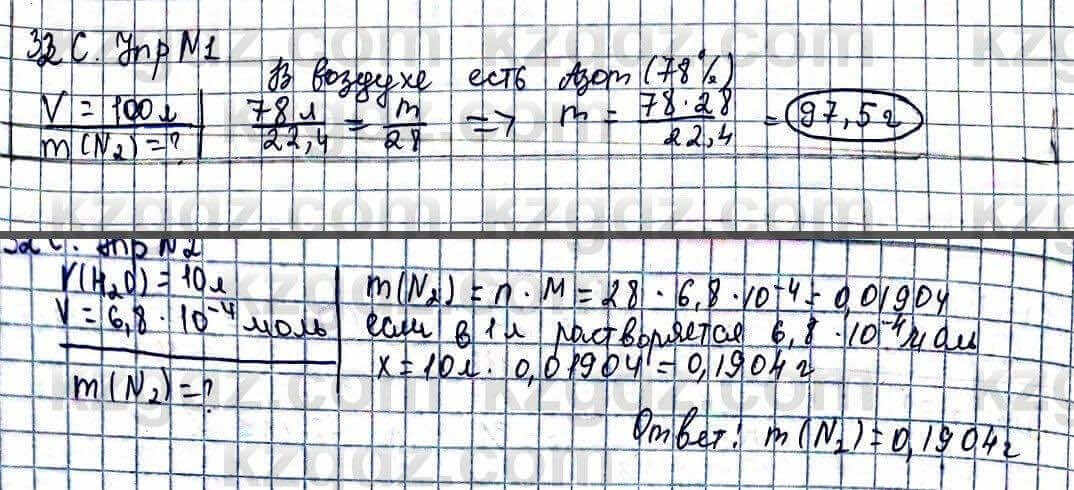 32 С. Упр N1
В воздухе есть Азот (78%)
V = 100 л
m(N₂)=?
78 л / 22,4 = m / 28 => m = 78·28 / 22,4 = 97,5 г
32 С. Упр N2
V(H₂O) = 10 л
V = 6,8 · 10⁻⁴ моль
m(N₂) = ?
m(N₂) = n · M = 28 · 6,8 · 10⁻⁴ = 0,01904
если в 1 л растворяется 6,8 · 10⁻⁴ моль
x = 10 л · 0,01904 = 0,1904 г
Ответ! m(N₂) = 0,1904 г
kzgdz.com